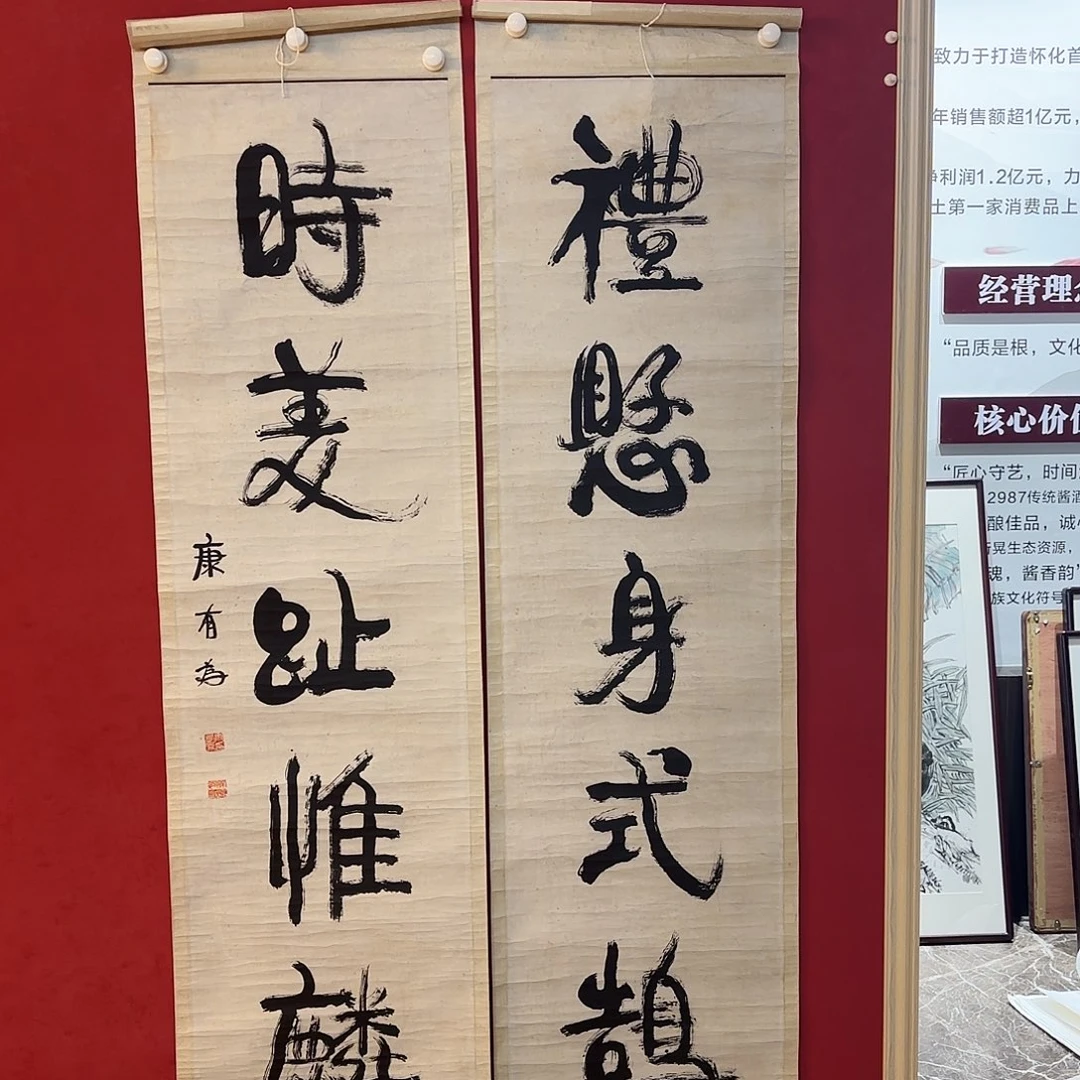 禮懸身式鵠
時美趾惟麟
康有為
致力于打造怀化首
年销售额超1亿元，
利润1.2亿元，力
土第一家消费品上
经营理
“品质是根，文化
核心价值
“匠心守艺，时间
2987传统酱酒
酿佳品，诚
晃生态资源，
魂，酱香韵”
族文化符号